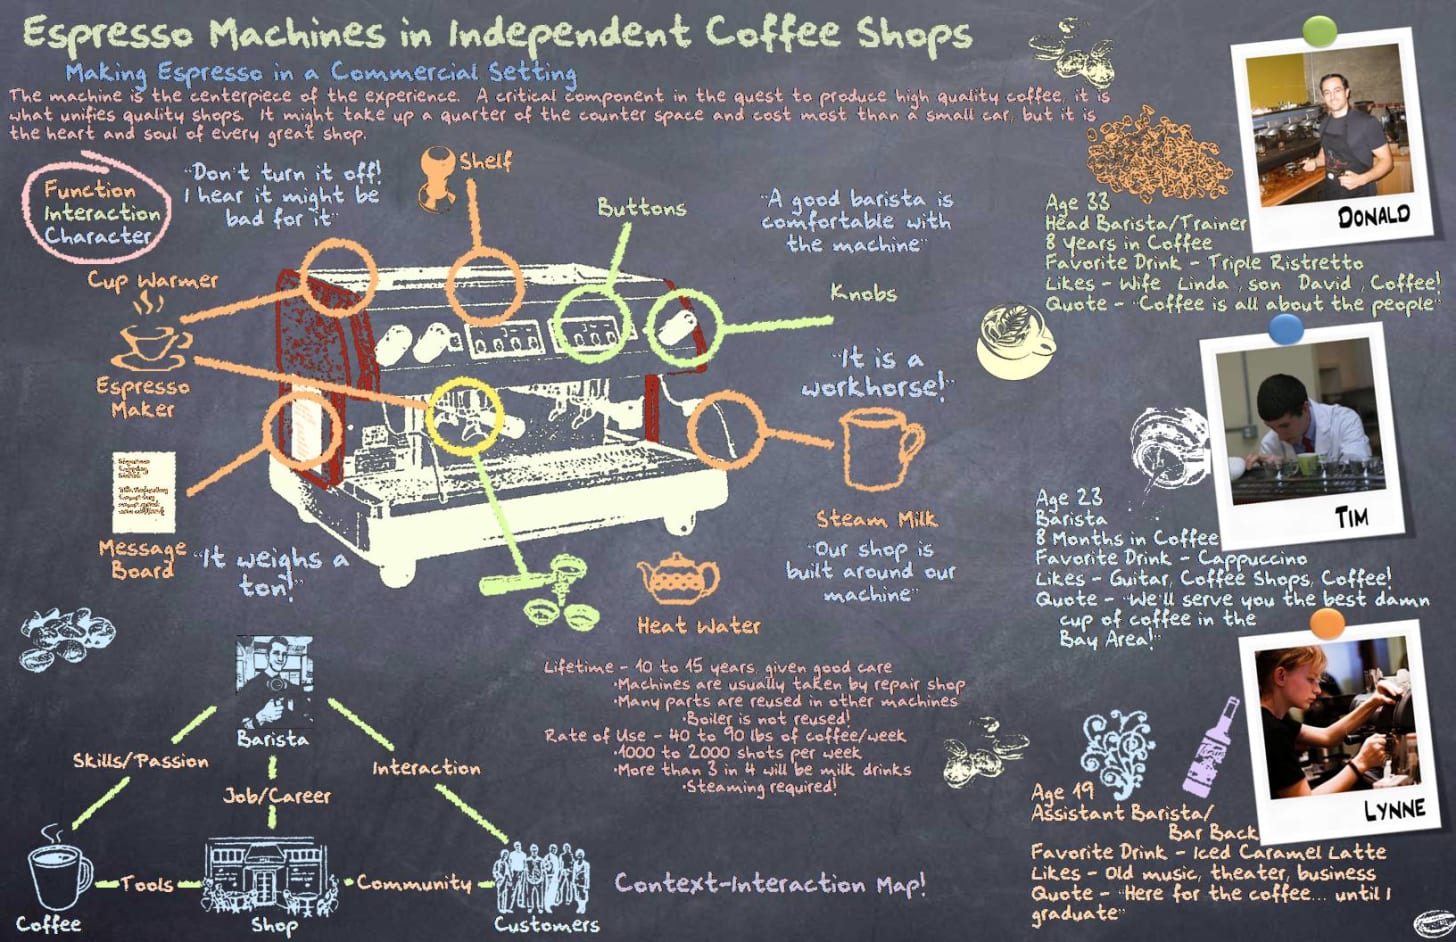 Espresso Machines in Independent Coffee Shops
Making Espresso in a Commercial Setting
The machine is the centerpiece of the experience. A critical component in the quest to produce high quality coffee, it is
what unifies quality shops. It might take up a quarter of the counter space and cost most than a small car, but it is
the heart and soul of every great shop.
Function
Interaction
Character
"Don't turn it off!
I hear it might be
bad for it"
Shelf
Buttons
"A good barista is
comfortable with
the machine"
Cup Warmer
Knobs
Espresso
Maker
"It is a
workhorse!"
Message
Board
"It weighs a
ton!"
Steam Milk
"Our shop is
built around our
machine"
Heat Water
Lifetime - 10 to 15 years, given good care
•Machines are usually taken by repair shop
•Many parts are reused in other machines
•Boiler is not reused!
Rate of Use - 40 to 90 lbs of coffee/week
•1000 to 2000 shots per week
•More than 3 in 4 will be milk drinks
•Steaming required!
Barista
Skills/Passion
Interaction
Job/Career
Tools
Community
Coffee
Shop
Customers
Context-Interaction Map!
DONALD
Age 33
Head Barista/Trainer
8 Years in Coffee
Favorite Drink - Triple Ristretto
Likes - Wife Linda, son David, Coffee!
Quote - "Coffee is all about the people"
TIM
Age 23
Barista
8 Months in Coffee
Favorite Drink - Cappuccino
Likes - Guitar, Coffee Shops, Coffee!
Quote - "We'll serve you the best damn
cup of coffee in the
Bay Area!"
LYNNE
Age 19
Assistant Barista/
Bar Back
Favorite Drink - Iced Caramel Latte
Likes - Old music, theater, business
Quote - "Here for the coffee... until I
graduate"